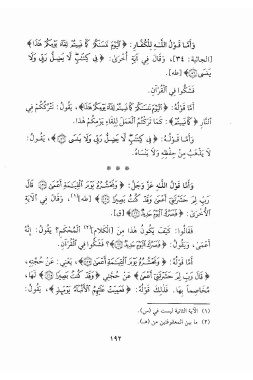 وَأَمَّا قَوْلُ اللَّهِ لِلْكُفَّارِ: ﴿ٱلْيَوْمَ نَنسَىٰكُمْ كَمَا نَسِيتُمْ لِقَآءَ يَوْمِكُمْ هَٰذَا﴾
[الجاثية: ٣٤]، وَقَالَ فِي آيَةٍ أُخْرَى: ﴿فِى كِتَٰبٍ لَّا يَضِلُّ رَبِّى وَلَا
يَنسَى﴾ [طه].
فَشَكُّوا فِي الْقُرْآنِ.
أَمَّا قَوْلُهُ: ﴿ٱلْيَوْمَ نَنسَىٰكُمْ كَمَا نَسِيتُمْ لِقَآءَ يَوْمِكُمْ هَٰذَا﴾، يَقُولُ: نَتْرُكُكُمْ فِي
النَّارِ ﴿كَمَا نَسِيتُمْ﴾: كَمَا تَرَكْتُمُ الْعَمَلَ لِلِقَاءِ يَوْمِكُمْ هَذَا.
وَأَمَّا قَوْلُهُ: ﴿فِى كِتَٰبٍ لَّا يَضِلُّ رَبِّى وَلَا يَنسَى﴾، يَقُولُ:
لَا يَذْهَبُ مِنْ حِفْظِهِ وَلَا يَنْسَاهُ.
* * *
وَأَمَّا قَوْلُ اللَّهِ عَزَّ وَجَلَّ: ﴿وَنَحْشُرُهُۥ يَوْمَ ٱلْقِيَٰمَةِ أَعْمَىٰ قَالَ
رَبِّ لِمَ حَشَرْتَنِىٓ أَعْمَىٰ وَقَدْ كُنتُ بَصِيرًا﴾ [طه](١)، وَقَالَ فِي الْآيَةِ
الْأُخْرَى: ﴿فَبَصَرُكَ ٱلْيَوْمَ حَدِيدٌ﴾ [ق].
فَقَالُوا: كَيْفَ يَكُونُ هَذَا مِنَ [الْكَلَامِ](٢) الْمُحْكَمِ؟ يَقُولُ: إِنَّهُ
أَعْمَى، وَيَقُولُ: ﴿فَبَصَرُكَ ٱلْيَوْمَ حَدِيدٌ﴾؟ فَشَكُّوا فِي الْقُرْآنِ.
أَمَّا قَوْلُهُ: ﴿وَنَحْشُرُهُۥ يَوْمَ ٱلْقِيَٰمَةِ أَعْمَىٰ﴾، يَعْنِي: عَنْ حُجَّتِهِ،
﴿قَالَ رَبِّ لِمَ حَشَرْتَنِىٓ أَعْمَىٰ﴾ عَنْ حُجَّتِي ﴿وَقَدْ كُنتُ بَصِيرًا﴾ لَهَا،
مُخَاصِمًا بِهَا. فَذَلِكَ قَوْلُهُ: ﴿فَعَمِيَتْ عَلَيْهِمُ ٱلْأَنۢبَآءُ يَوْمَئِذٍ﴾، يَقُولُ:
(١) الآية الثانية ليست في (س).
(٢) ما بين المعقوفين من (هـ).
١٩٢